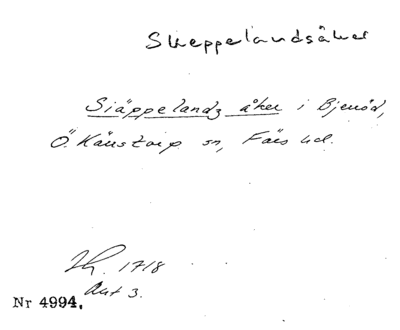 Skeppelandsåker
Siäppelandz åker i Bjeröd,
Ö. Kärstorp sn, Färs hd.
Lh. 1718
Akt 3.
Nr 4994.